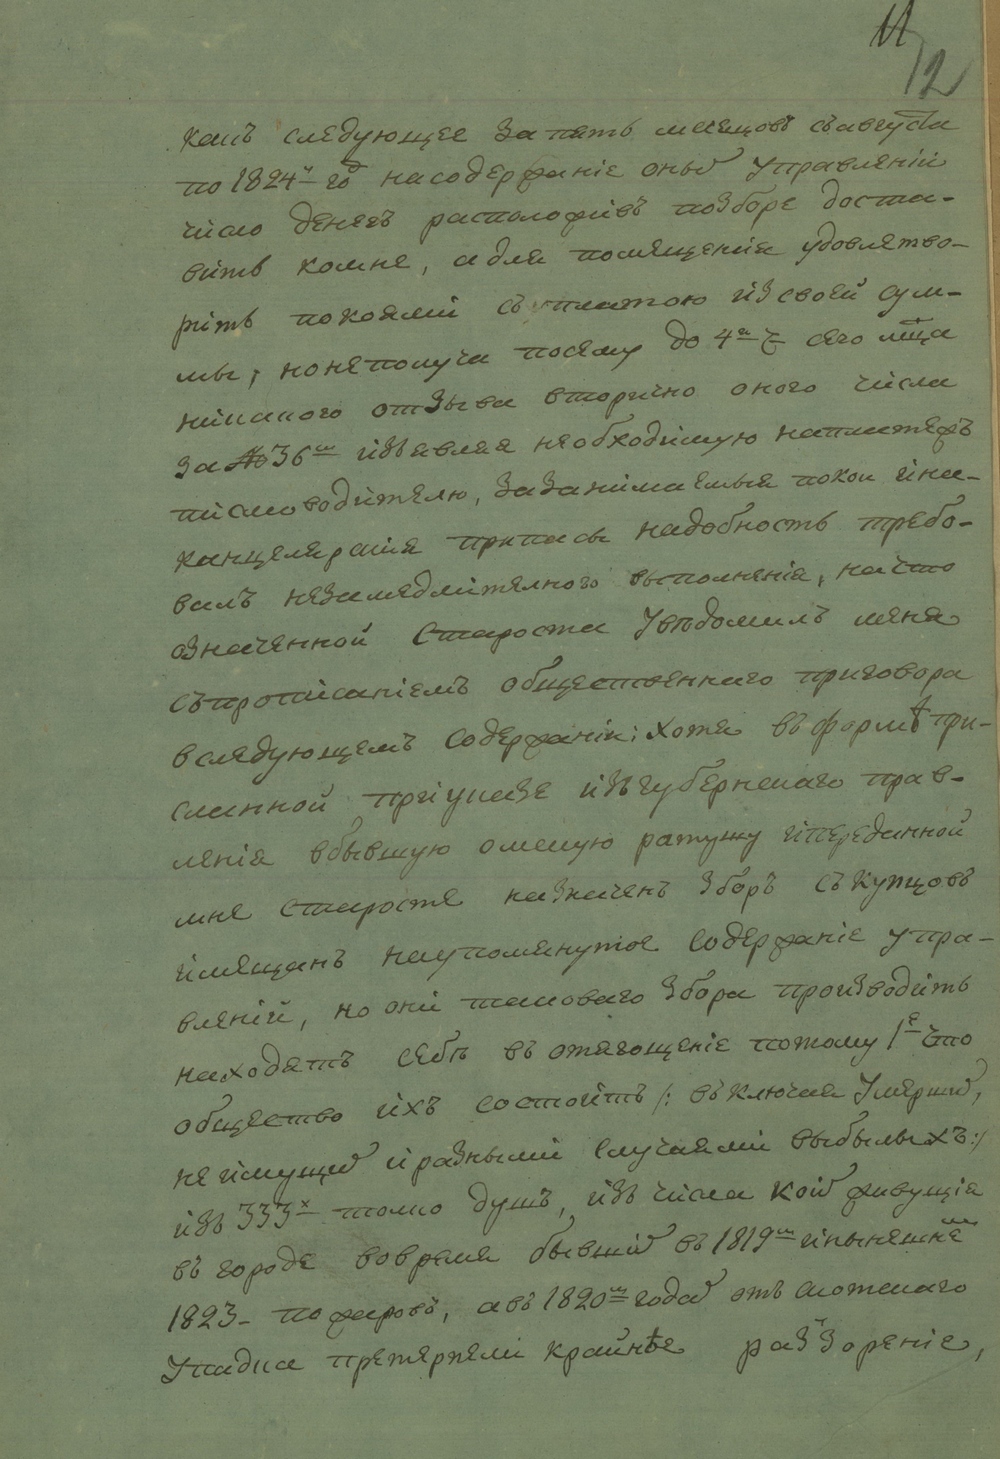 11
12
камъ следующее за пять месяцовъ съ августа
по 1824й годъ на содержаніе оныхъ управленій
число денегъ расположивъ по зборе доста-
вить комне, а для помещенія удовлетво-
рить покоями съ платою изъ своей сум-
мы, но не получа посему до 4го ч. сего м-ца
никакого отзыва вторично оного числа
за №36м изъявляя необходимую на платежъ
писмоводителю, за занимаемыя покои и на-
канцелярскія припасы надобность требо-
валъ незамедлителного выполненія, на что
означенной Староста Уведомилъ меня
съ прописаніемъ общественнаго приговора
в следующемъ содержаніи: хотя въ форме при-
сланной при указе изъ губернскаго прав-
ленія в бывшую омскую ратушу и переданной
мне старосте назначенъ зборъ съ купцовъ
и мещанъ на упомянутое содержаніе упра-
вленій, но они таковаго збора производить
находятъ себѣ въ отягощеніе потому 1е что
общество ихъ состоитъ /: въключая Умершихъ,
неимущихъ и разными случаями выбылыхъ:/
изъ 333х толко душъ, изъ числа коихъ живущія
въ городе во время бывшихъ въ 1819м и нынешнемъ
1823- пожаровъ, а въ 1820м годахъ отъ скотскаго
Упадка претерпели крайнѣе раззореніе,